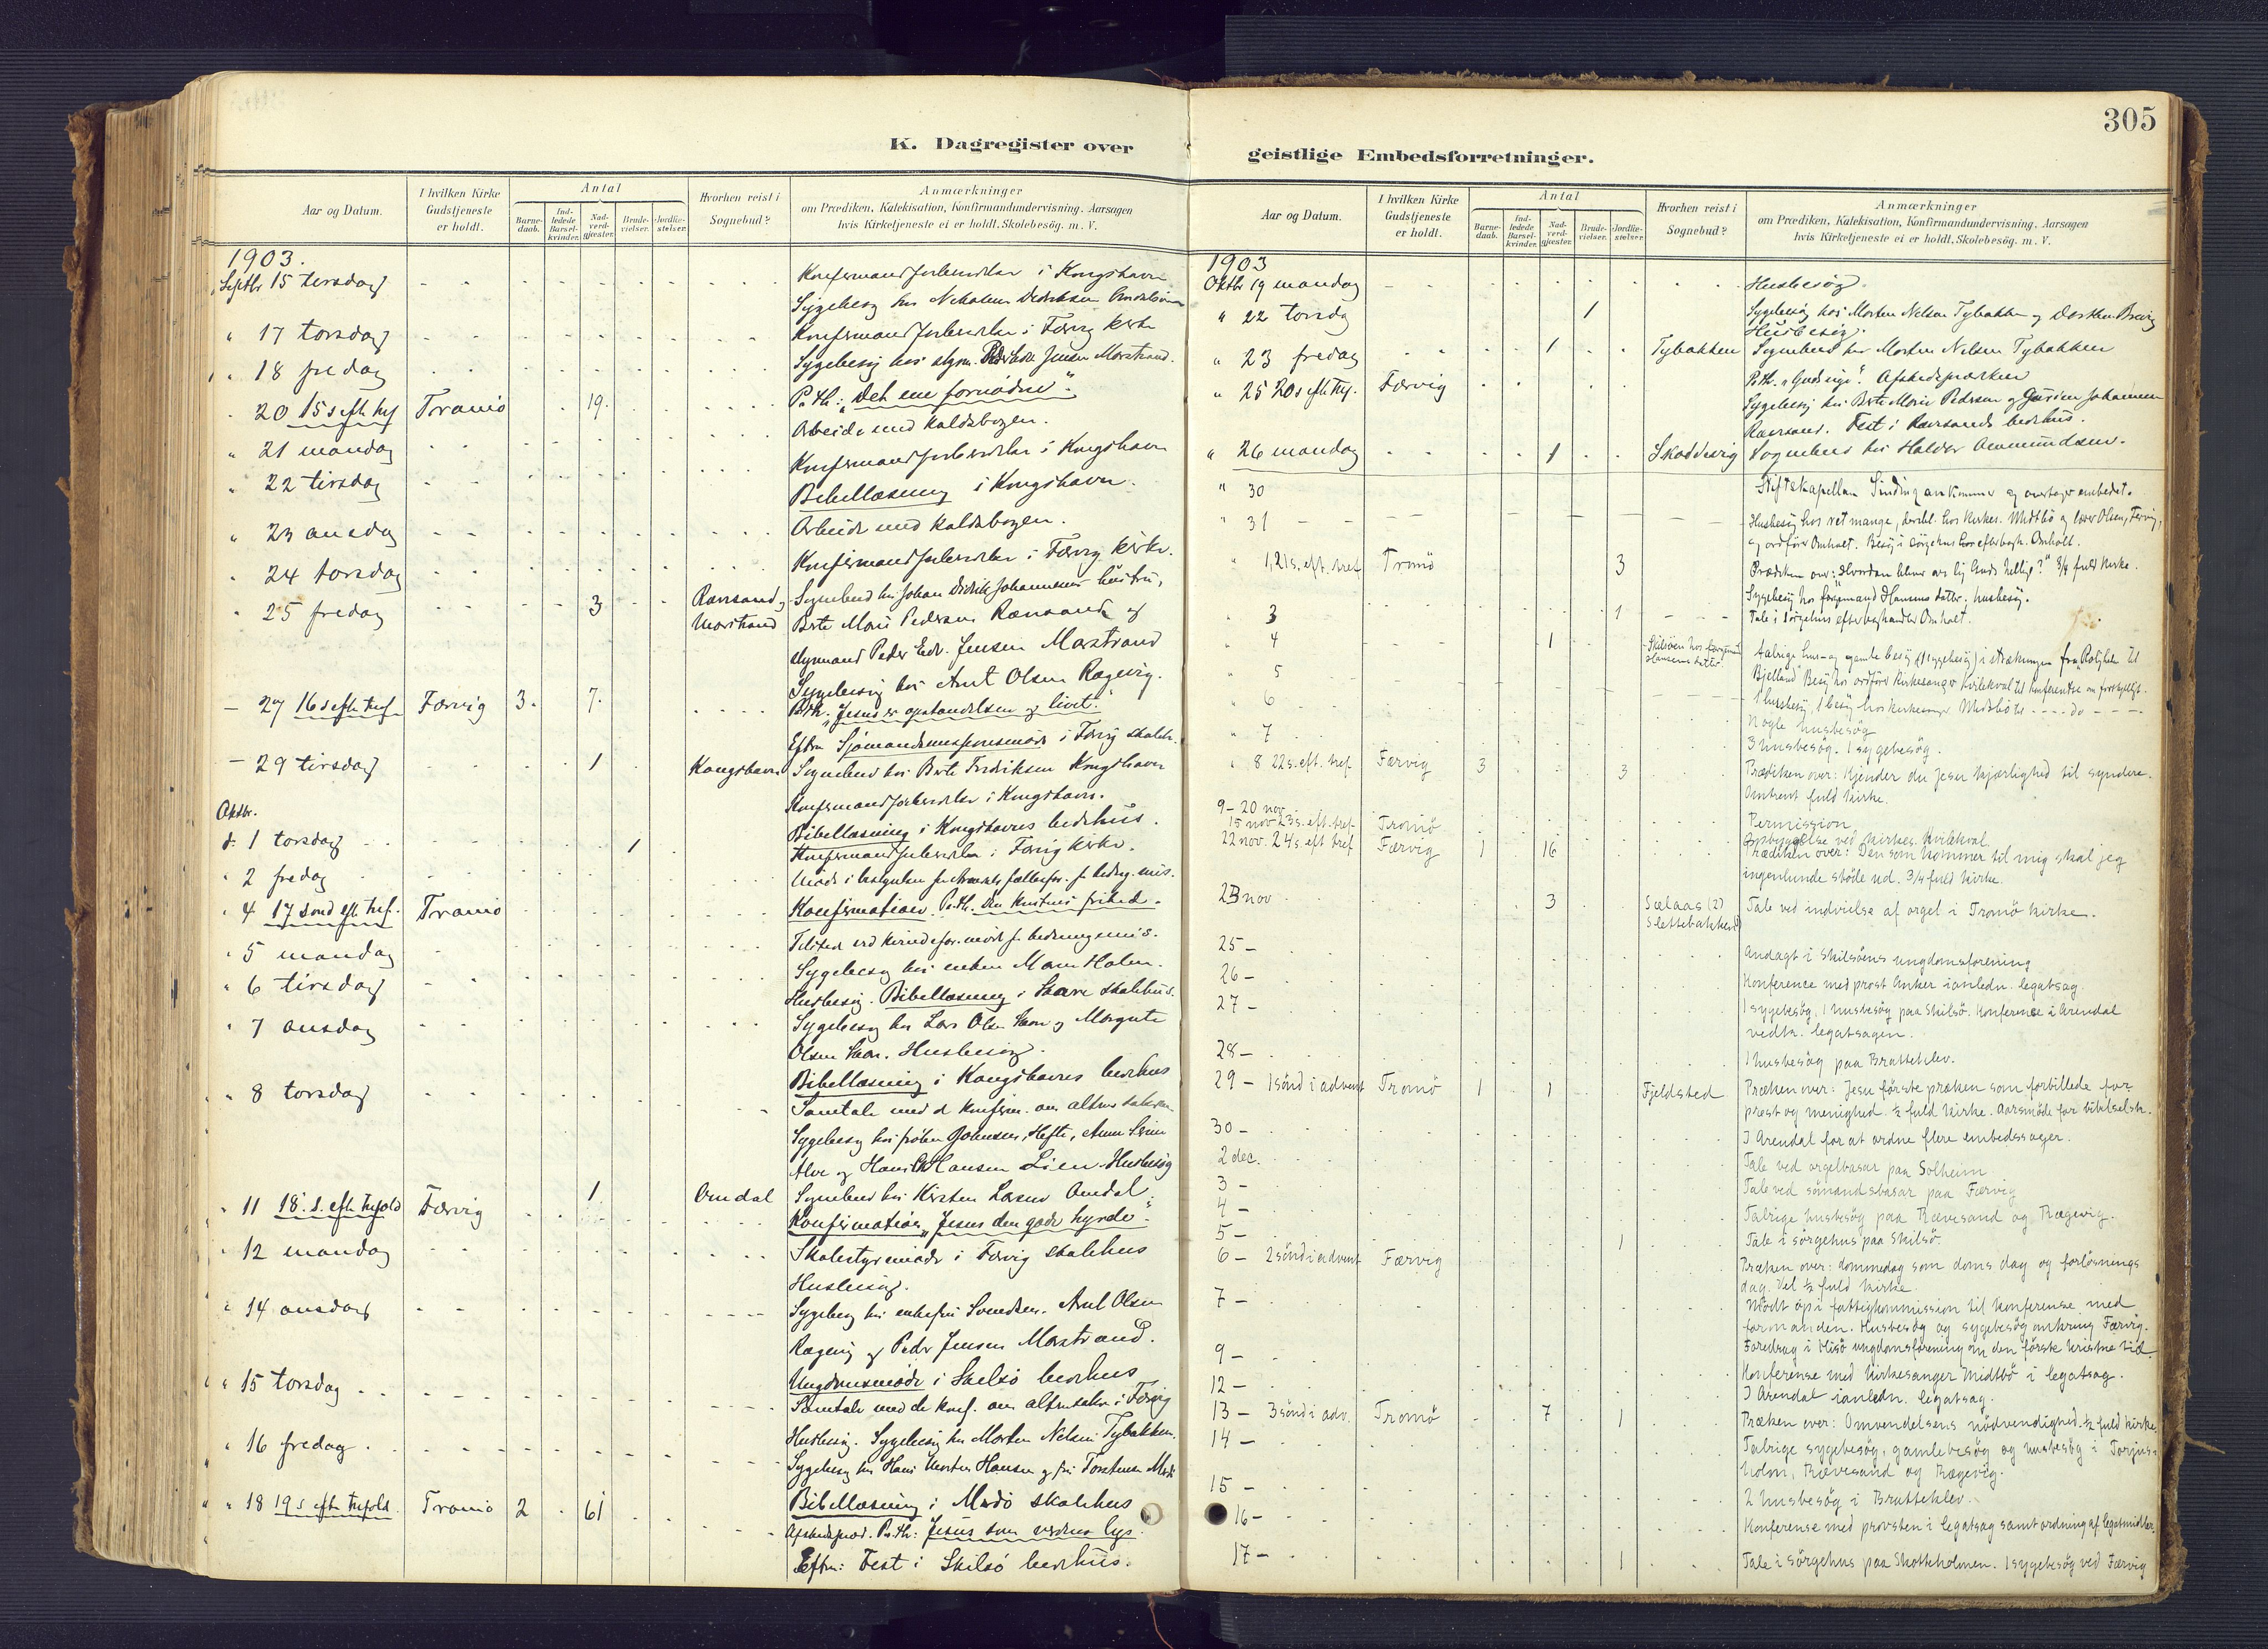 305
K. Dagregister over
Aar og Datum.
I hvilken Kirke Gudstjeneste er holdt.
Antal
Barne-daab.
Ind-ledede Barsel-kvinder.
Nad-verd-gjester.
Brude-vielser.
Jordfæ-stelser.
Hvorhen reist i Sognebud?
Anmærkninger
om Prædiken, Katekisation, Konfirmandundervisning. Aarsagen
hvis Kirketjeneste ei er holdt. Skolebesög. m. V.
1903.
Septbr 15 tirsdag Konfirmandforberedelse i Kongshavn
Sygebesøg hos
" 17 torsdag Konfirmandforberedelse i Færvig kirke
" 18 fredag Sygebesøg hos Jensen Marstrand.
" 20 15 s efter tref Tromø 19. P. th: "Det ene fornødne".
" 21 mandag Arbeide med kaldsbogen.
" 22 tirsdag Konfirmandforberedelse i Kongshavn
Bibellæsning i Kongshavn.
" 23 onsdag Arbeide med kaldsbogen.
" 24 torsdag Konfirmandforberedelse i Færvig kirke.
" 25 fredag 3 Rævsand og Marstrand Sognebud hos Johan Didrik Johannesens hustru,
Berte Marie Pedersen Rævsand og
Peder Edv. Jensen Marstrand
Sygebesøg hos Arnt Olsen Rægevig.
— 27 16 s efter tref. Færvig 3. 7. P. th. "Jesus er opstandelsen og livet."
Efterm Sjømandsmissionsmøde i Færvig skoleh.
— 29 tirsdag 1 Kongshavn Sognebud hos Berte Fredriksen Kongshavn
Konfirmandforberedelse i Kongshavn.
Bibellæsning i Kongshavns bedehus.
Oktbr.
d. 1 torsdag 1 Konfirmandforberedelse i Færvig kirke.
" 2 fredag
" 4 17 sønd efter tref. Tromø Konfirmation. P. th. Den kristnes frihed.
" 5 mandag
" 6 tirsdag Sygebesøg hos enken Maren Holm.
Husbesøg. Bibellæsning i skolehus.
" 7 onsdag Sygebesøg hos Lars Olsen og Margrete
Olsen Husbesøg.
Bibellæsning i Kongshavns bedehus
" 8 torsdag Samtale med konfirm. om altrets sakram.
Sygebesøg hos frøken Johnsen, Hefte,
Alve og Hansen Lien. Husbesøg
" 11 18. s. efter trefold Færvig 1 Omdal Sognebud hos Kirsten Larsen Omdal.
Konfirmation "Jesus den gode hyrde".
" 12 mandag Skolestyremøde i Færvig skolehus
Husbesøg.
" 14 onsdag Sygebesøg hos enkefru Svendsen. Arnt Olsen
Rægevig og Peder Jensen Marstrand.
Ungdomsmøde i Skilsø bedehus
" 15 torsdag Samtale med de konf. om altrets sakr. i Færvig
" 16 fredag Husbesøg. Sygebesøg hos Morten Nelsen Tybakken.
Sygebesøg hos Hans Hansen og fru
Bibellæsning i skolehus
" 18 19 s efter trefold. Tromø 2 61 Afskedspræd. P. th: Jesus som verdens lys.
Efterm: Fest i Skilsø bedehus.
geistlige Embedsforretninger.
Aar og Datum.
I hvilken Kirke Gudstjeneste er holdt.
Antal
Barne-daab.
Ind-ledede Barsel-kvinder.
Nad-verd-gjester.
Brude-vielser.
Jordfæ-stelser.
Hvorhen reist i Sognebud?
Anmærkninger
om Prædiken, Katekisation, Konfirmandundervisning, Aarsagen
hvis Kirketjeneste ei er holdt, Skolebesög. m. V.
1903
Oktbr 19 mandag Husbesøg.
" 22 torsdg 1 Sygebesøg hos Morten Nelsen Tybakken og
Husbesøg.
" 23 fredag 1 Tybakken Sognebud hos Morten Nelsen Tybakken
" 25 20 s efter tref. Færvig P. th. Afskedsprædiken
Sygebesøg hos Berte Marie Pedersen og Johannesen
Rævsand. Fest i Rævsands bedehus.
" 26 mandag 1 Skoddevig Sognebud hos Halvor Ommundsen.
" 30 Stiftskapellan Sinding ankommer og overtager embedet.
" 31 Husbesøg hos ret mange, deribl. hos kirkes. Midtbø og Olsen, Færvig,
og ordfører Omholt. Besøg i sørgehus hos efterbagh. Omholt.
" 1, 21 s. eft. tref Tromö 3 Prædiken over: "Hvordan bliver vor lig Guds hellig?" 3/4 fuld kirke.
Sygebesøg hos færgemand Hansens datter. Husbesøg.
" 3 1 Tale i sørgehus efter baghandler Omholt.
" 4 1 Skilsöen hos færgemand Hansens datter Talrige hus- og gamle besøg (sygebesøg) i strækningen fra Rolighed til
" 5 Bjelland. Besøg hos ordfører kirkesanger Kvilekval til konferentse om
" 6 1 husbesøg, 1 besøg hos kirkesanger Midtbø til - - - do - - -
Nogle husbesøg
" 7 3 husbesøg. 1 sygebesøg.
" 8 22 s. eft. tref. Færvig 3 3 Prædiken over: Kjender du Jesu kjærlighed til syndere.
Omtrent fuld kirke.
9 - 20 nov. Permission.
15 nov 23 s. eft. tref. Tromö ved kirkes. Kvilekval.
22 nov. 24 s. eft tref Færvig 1 16 Prædiken over: Den som kommer til mig skal jeg
ingenlunde støde ud. 3/4 fuld kirke.
23 nov 3 Sælaas (2) Slettebakken Tale ved indvielse af orgel i Tromö kirke.
25 - Andagt i Skilsöens ungdomsforening
26 - Konference med prost Anker i anledn. legatsag.
27 - 1 sygebesøg, 1 husbesøg paa Skilsö. Konference i Arendal
vedk. legatsagen.
28 - 1 husbesøg paa Bratteklev.
29 - 1 sönd i advent Tromö 1 1 Fjeldsted Præken over: Jesu første præken som forbillede for
prest og menighed. 1/2 fuld kirke. Aarsmöde for bibelselsk.
30 - I Arendal for at ordne flere embedssager.
2 dec. Tale ved orgelbasar paa Solheim
3 - Tale ved sömandsbasar paa Færvig
4 - Talrige husbesøg paa Rævesand og Rægevig.
5 - 1 Tale i sörgehus paa Skilsö.
6 - 2 sönd i advent Færvig Præken over: dommedag som doms dag og forlösnings
dag. Vel 1/2 fuld kirke.
7 - Mödt op i fattigkommission til konferense med
formanden. Husbesøg og sygebesøg omkring Færvig.
9 - Foredrag i Hisö ungdomsforening om den förste kristne tid.
Konferense med kirkesanger Midtbö i legatsag.
12 - I Arendal i anledn. legatsag.
13 - 3 sönd i adv. Tromö 7 1 Præken over: Omvendelsens nödvendighed. 1/2 fuld kirke.
14 - Talrige sygebesøg, gamlebesøg og husbesøg i Torjus-
holm, Rævesand og Rægevig.
15 - 2 husbesøg i Bratteklev.
16 - Konferense med provsten i legatsag samt ordning af legatmidler.
17 - 1 Tale i sörgehus paa Skotteholmen. 1 sygebesøg ved Færvig